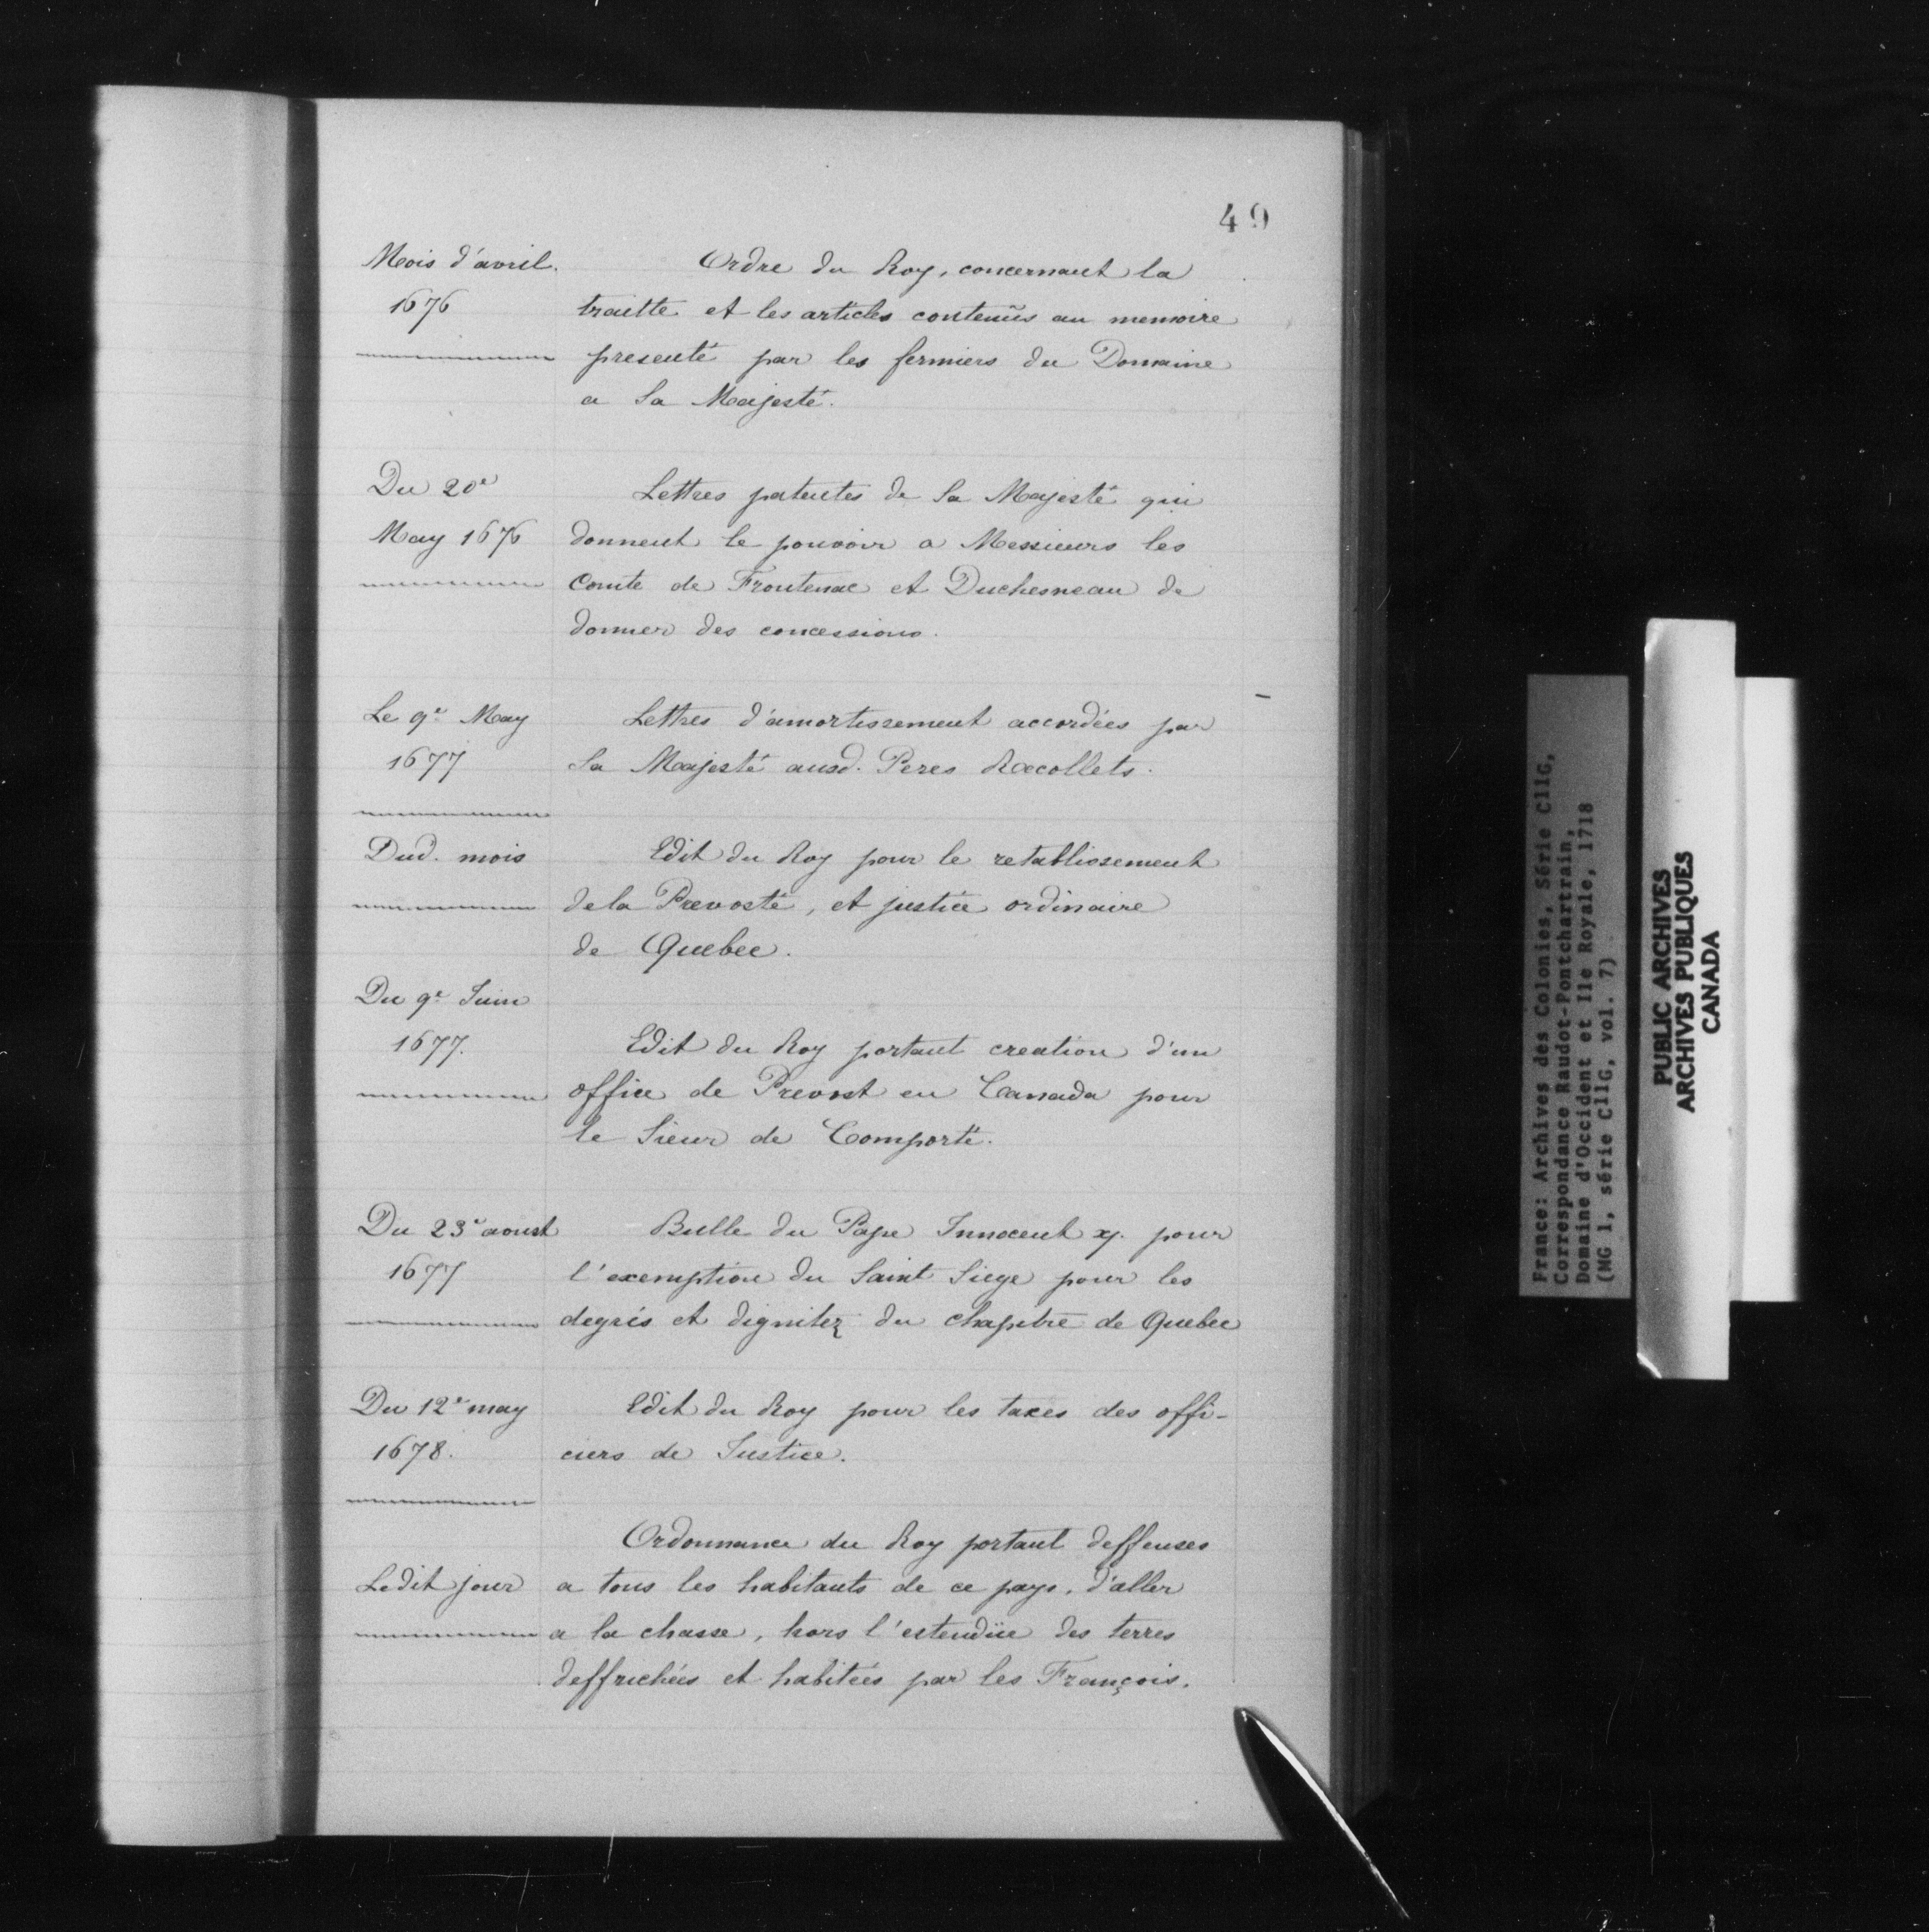 49
Mois d'avril.
1676
Ordre du Roy, concernant la
traitte et les articles contenüs au memoire
presenté par les fermiers du Domaine
a Sa Majesté.
Du 20e
May 1676
Lettres patentes de Sa Majesté qui
donnent le pouvoir a Messieurs les
Comte de Frontenac et Duchesneau de
donner des concessions.
Le 9e May
1677
Lettres d'amortissement accordées par
Sa Majesté ausd. Peres Recollets.
Dud. mois
Edit du Roy pour le retablissement
de la Prevosté, et justice ordinaire
de Quebec.
Du 9e Juin
1677.
Edit du Roy portant creation d'un
office de Prevost en Canada pour
le Sieur de Comporté.
Du 23e aoust
1677
Bulle du Pape Innocent xj. pour
l'exemption du Saint Siege pour les
degrés et dignitez du chapitre de Quebec
Du 12e may
1678.
Edit du Roy pour les taxes des offi-
ciers de Justice.
Ledit jour
Ordonnance du Roy portant deffenses
a tous les habitants de ce pays, d'aller
a la chasse, hors l'estendüe des terres
deffrichées et habitées par les François.
France: Archives des Colonies, Série C11G,
Correspondance Raudot-Pontchartrain,
Domaine d'Occident et Ile Royale, 1718
(MG 1, série C11G, vol. 7)
PUBLIC ARCHIVES
ARCHIVES PUBLIQUES
CANADA